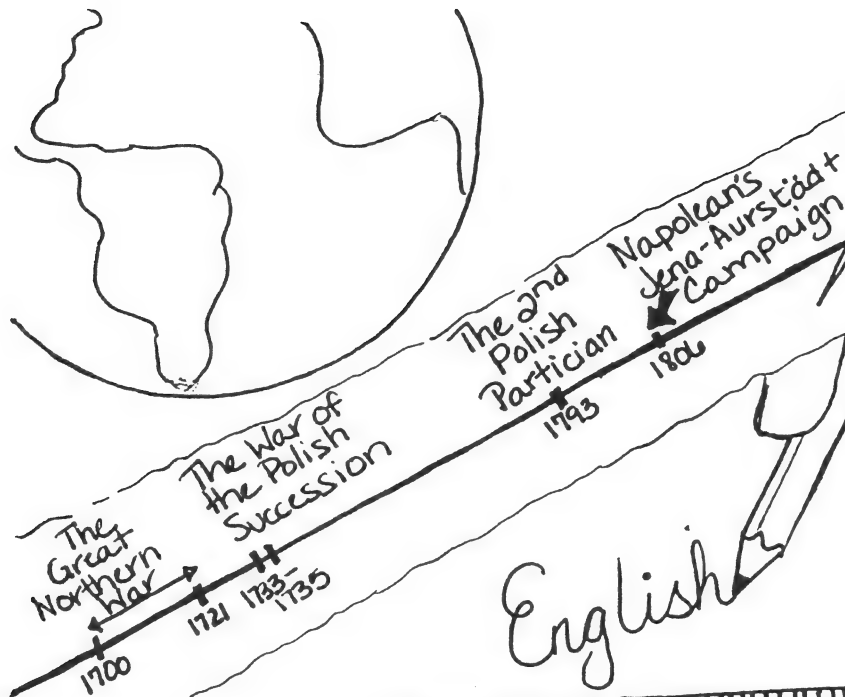 The
Great
Northern
War
1700
1721
The War of
the Polish
Succession
1733-
1735
The 2nd
Polish
Partician
1793
Napolean's
Jena-Aurstädt
Campaign
1806
English